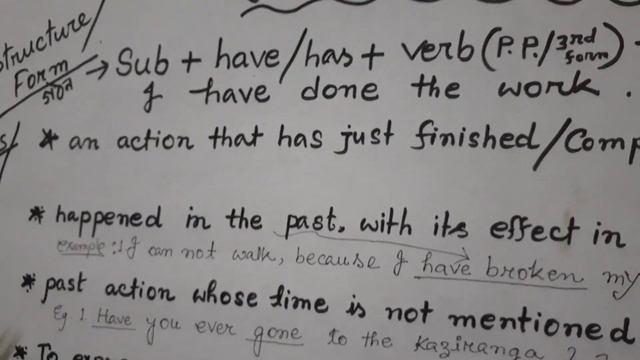 Structure/
Form
গঠন
→ Sub + have/has + verb (P.P./3rd form)
I have done the work.
* an action that has just finished/Comp
* happened in the past, with its effect in
example: 1 I can not walk, because I have broken my
* past action whose time is not mentioned
Eg 1. Have you ever gone to the kaziranga ?
* To